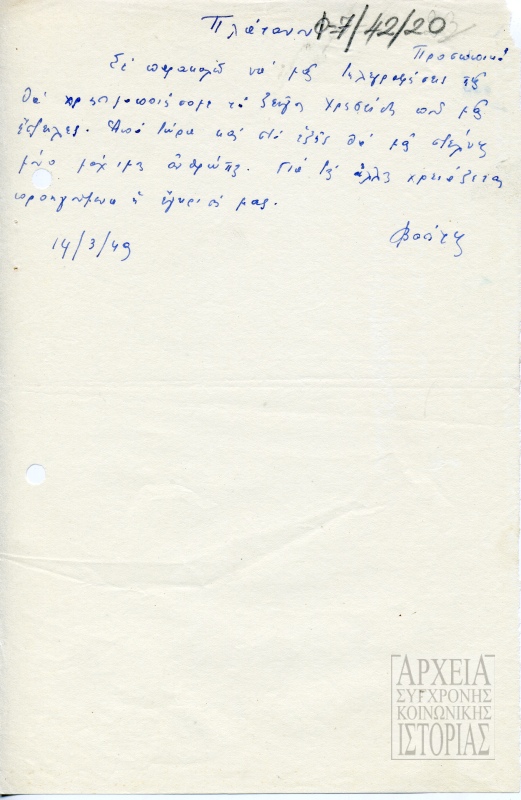 Πλάτανον Φ-7/42/20
Προσωπικό
Σέ παρακαλῶ νά μᾶς τηλεγραφήσεις πῶς
θά χρησιμοποιήσομε τό ζεῦγος πού μᾶς
ἔστειλες. Ἀπό τώρα καί στό ἑξῆς θά μᾶς στέλνεις
μόνο μάχιμους ἀνθρώπους. Γιά τούς ἄλλους χρειάζεται
προηγούμενα ἡ ἔγκρισή μας.
14/3/49
ΑΡΧΕΙΑ
ΣΥΓΧΡΟΝΗΣ
ΚΟΙΝΩΝΙΚΗΣ
ΙΣΤΟΡΙΑΣ